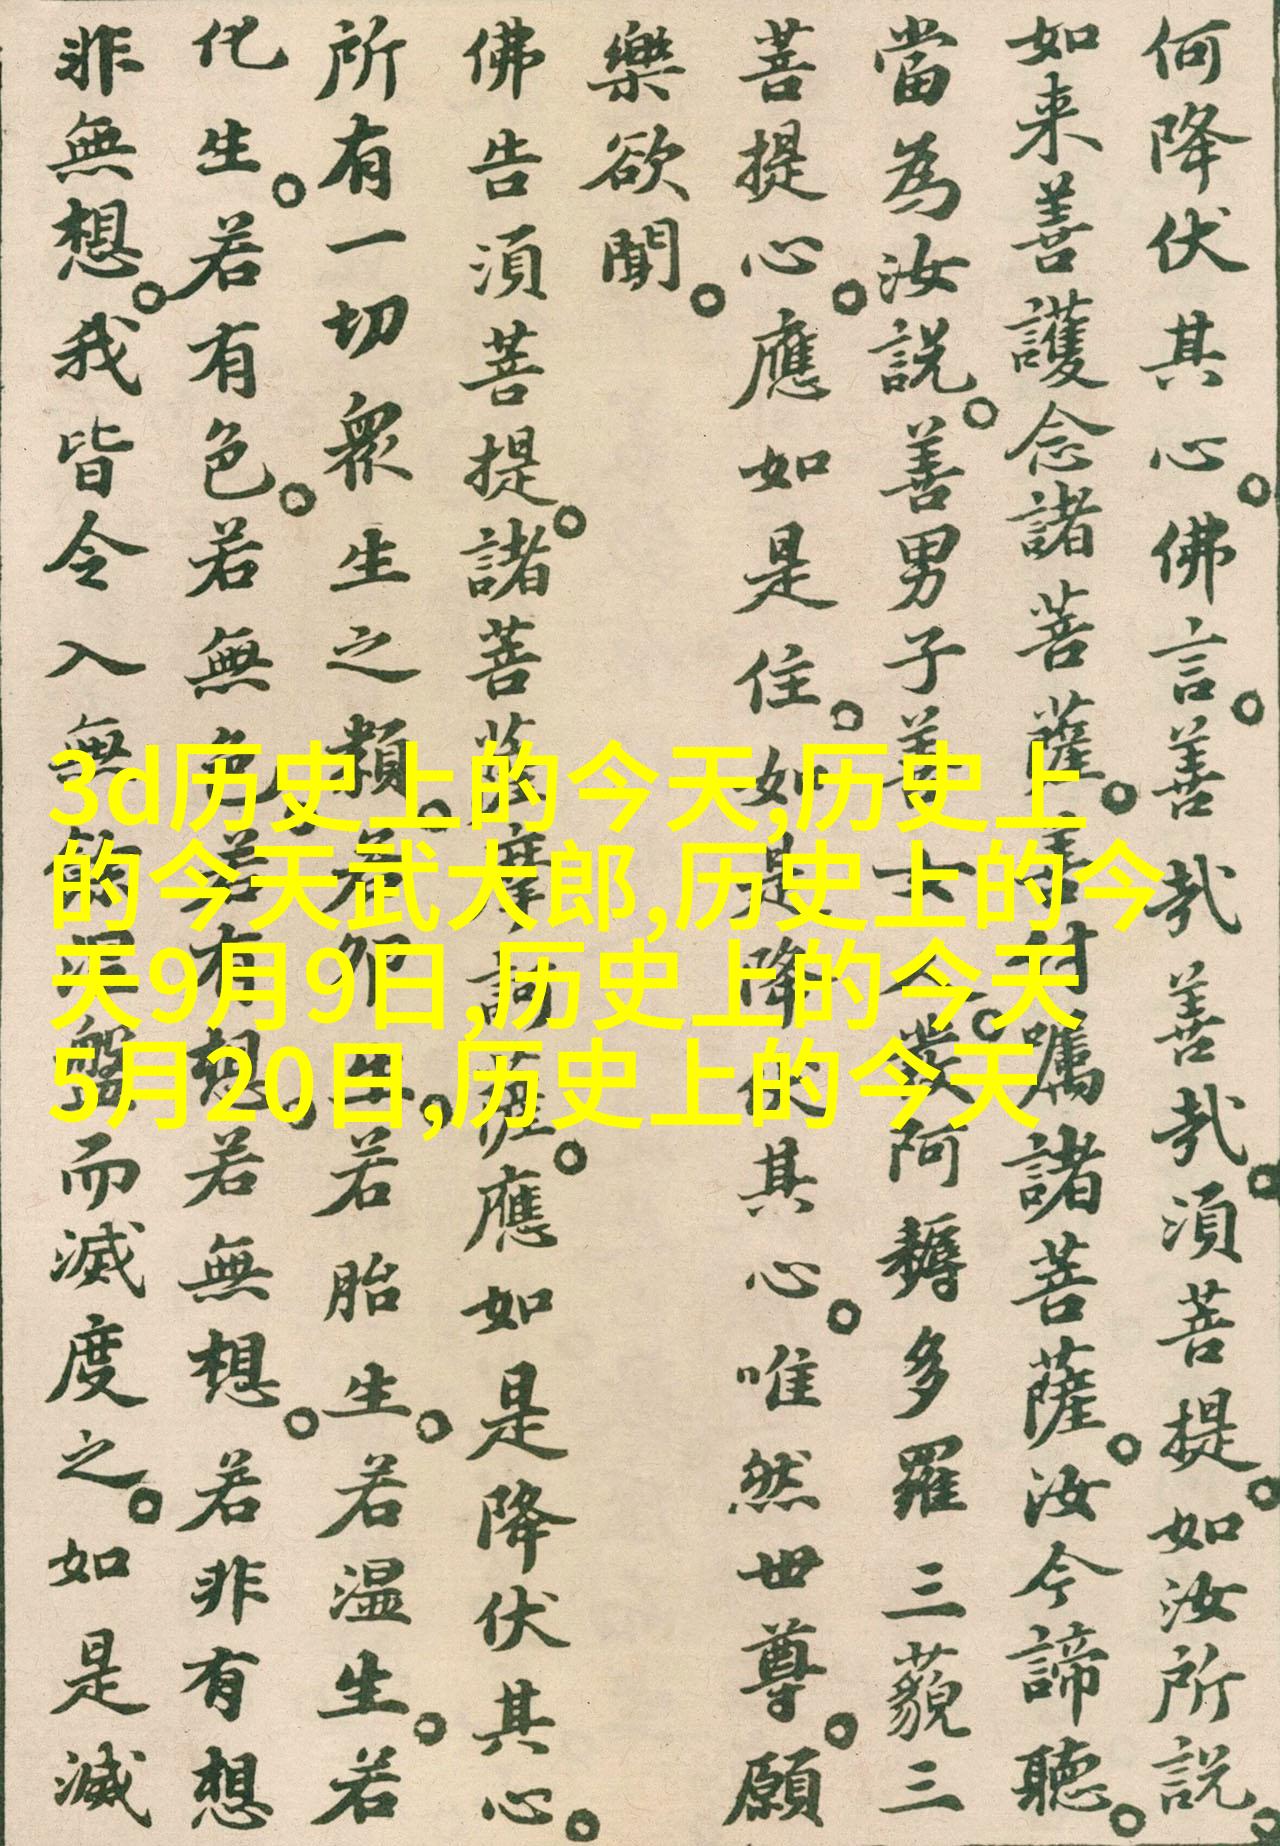 何降伏其心。佛言。善哉善哉。須菩提。如汝所說。
如来善護念諸菩薩。善付囑諸菩薩。汝今諦聽。
當為汝說。善男子善女人。發阿耨多羅三藐三
菩提心。應如是住。如是降伏其心。唯然世尊。願
樂欲聞。
佛告須菩提。諸菩薩摩訶薩。應如是降伏其心。
所有一切眾生之類。若卵生。若胎生。若温生。若
化生。若有色。若無色。若有想。若無想。若非有想
非無想。我皆令入無餘涅盤而滅度之。如是滅
3d历史上的今天,历史上
的今天武大郎,历史上的今
天9月9日,历史上的今天
5月20日,历史上的今天